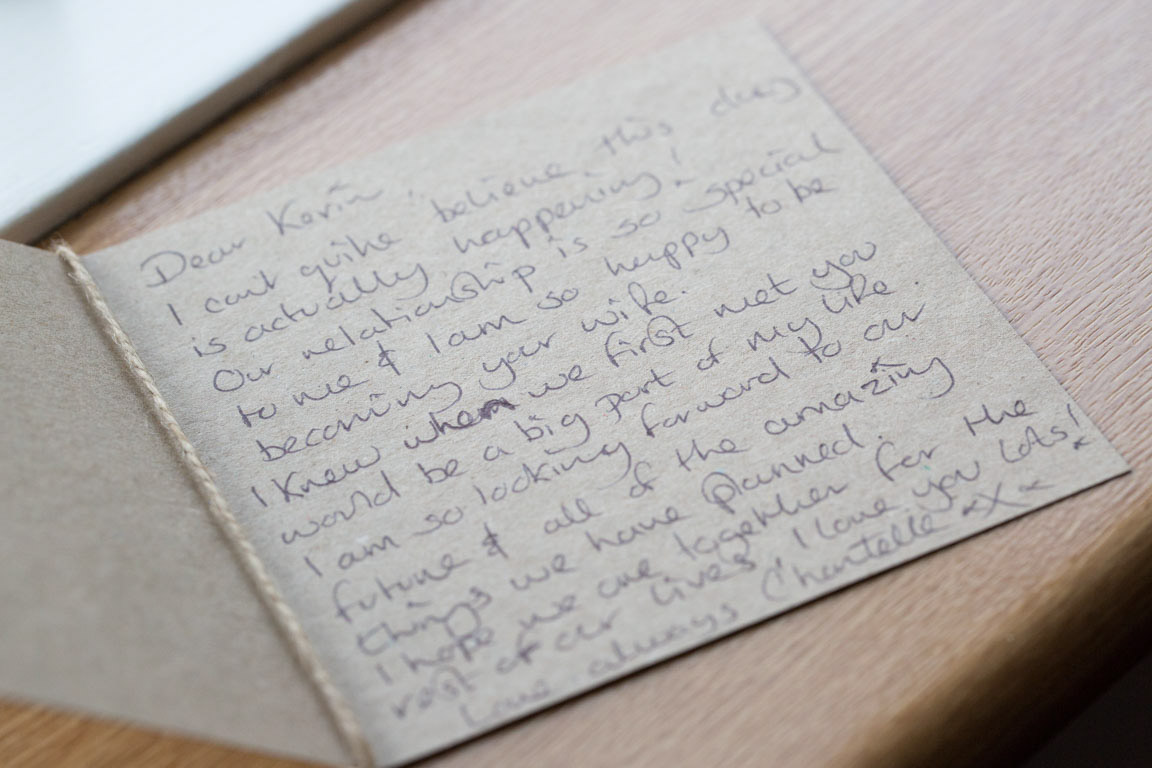 Dear Kevin,
I cant quite believe this day
is actually happening!
Our relationship is so special
to me & I am so happy to be
becoming your wife.
I knew when we first met you
would be a big part of my life.
I am so looking forward to our
future & all of the amazing
things we have planned.
I hope we are together for the
rest of our lives, I love you lots!
Love always Chantelle xXx x